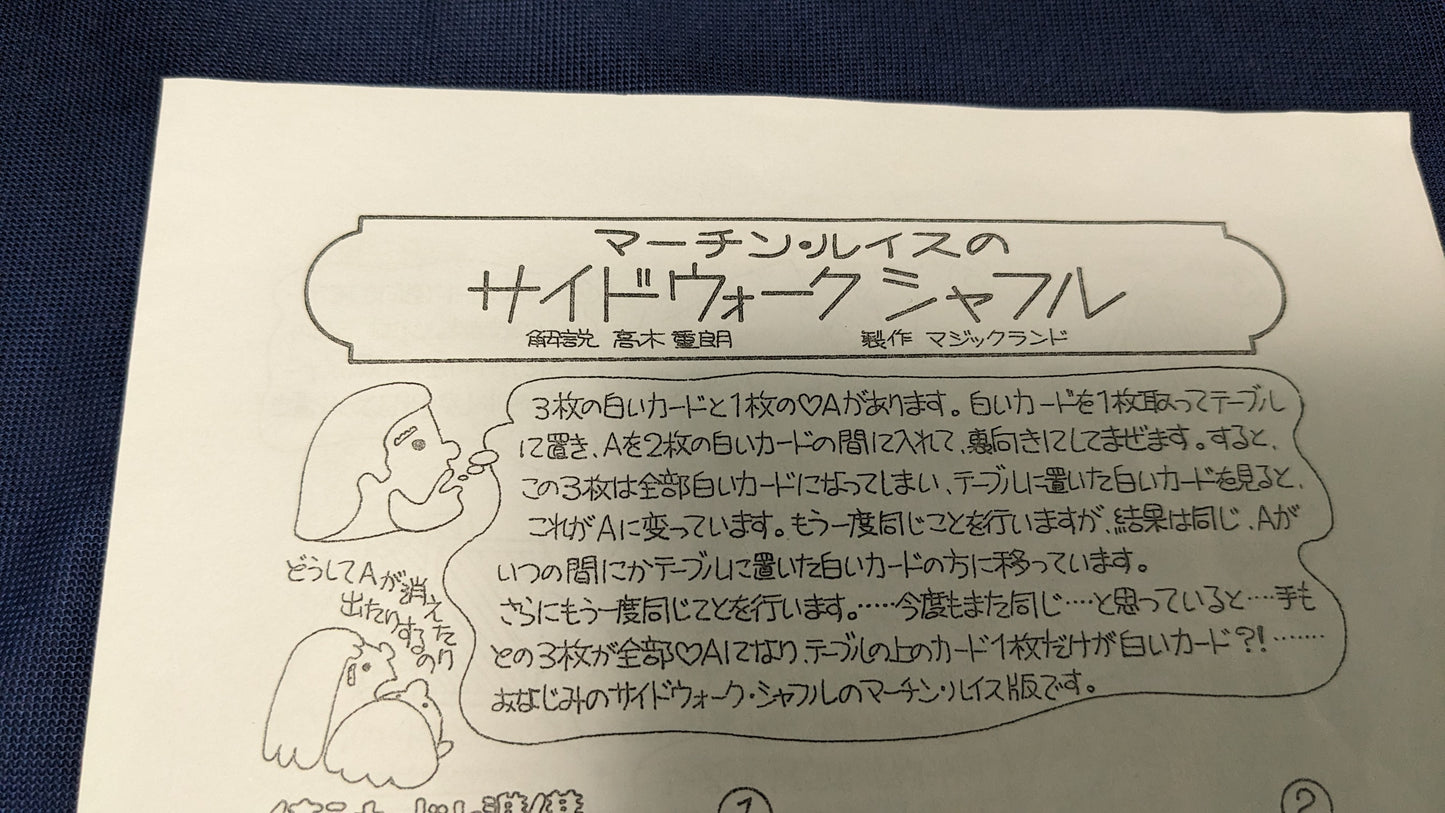 マーチン・ルイスの
サイドウォーク シャフル
解説 高木重朗 製作 マジックランド
3枚の白いカードと1枚の♡Aがあります。白いカードを1枚取ってテーブル
に置き、Aを2枚の白いカードの間に入れて、裏向きにしてまぜます。すると、
この3枚は全部白いカードになってしまい、テーブルに置いた白いカードを見ると、
これがAに変っています。もう一度同じことを行いますが、結果は同じ、Aが
いつの間にかテーブルに置いた白いカードの方に移っています。
さらにもう一度同じことを行います。……今度もまた同じ……と思っていると……手も
との3枚が全部♡Aになり、テーブルの上のカード1枚だけが白いカード?!………
おなじみのサイドウォーク・シャフルのマーチン・ルイス版です。
どうしてAが消えたり
出たりするの
①
②